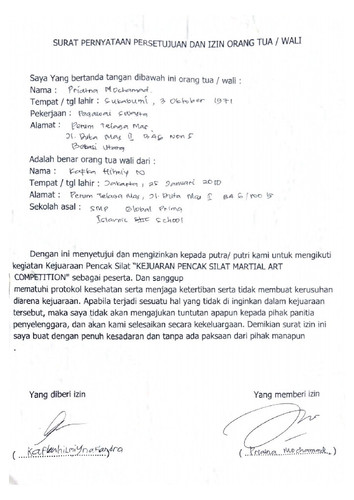 SURAT PERNYATAAN PERSETUJUAN DAN IZIN ORANG TUA / WALI
Saya Yang bertanda tangan dibawah ini orang tua / wali :
Nama : Priatna Mochamad
Tempat / tgl lahir : Sukabumi, 3 Oktober 1971
Pekerjaan : Pegawai Swasta
Alamat : Perum Telaga Mas
Jl. Duta Mas
Bekasi Utara
Adalah benar orang tua wali dari :
Nama :
Tempat / tgl lahir : Jakarta, 25 Januari 2010
Alamat : Perum Telaga Mas, Jl Duta Mas
Sekolah asal : SMP Global Prima
Islamic School
Dengan ini menyetujui dan mengizinkan kepada putra/ putri kami untuk mengikuti
kegiatan Kejuaraan Pencak Silat "KEJUARAN PENCAK SILAT MARTIAL ART
COMPETITION" sebagai peserta. Dan sanggup
mematuhi protokol kesehatan serta menjaga ketertiban serta tidak membuat kerusuhan
diarena kejuaraan. Apabila terjadi sesuatu hal yang tidak di inginkan dalam kejuaraan
tersebut, maka saya tidak akan mengajukan tuntutan apapun kepada pihak panitia
penyelenggara, dan akan kami selesaikan secara kekeluargaan. Demikian surat izin ini
saya buat dengan penuh kesadaran dan tanpa ada paksaan dari pihak manapun
.
Yang diberi izin Yang memberi izin
( ) ( Priatna Mochamad )